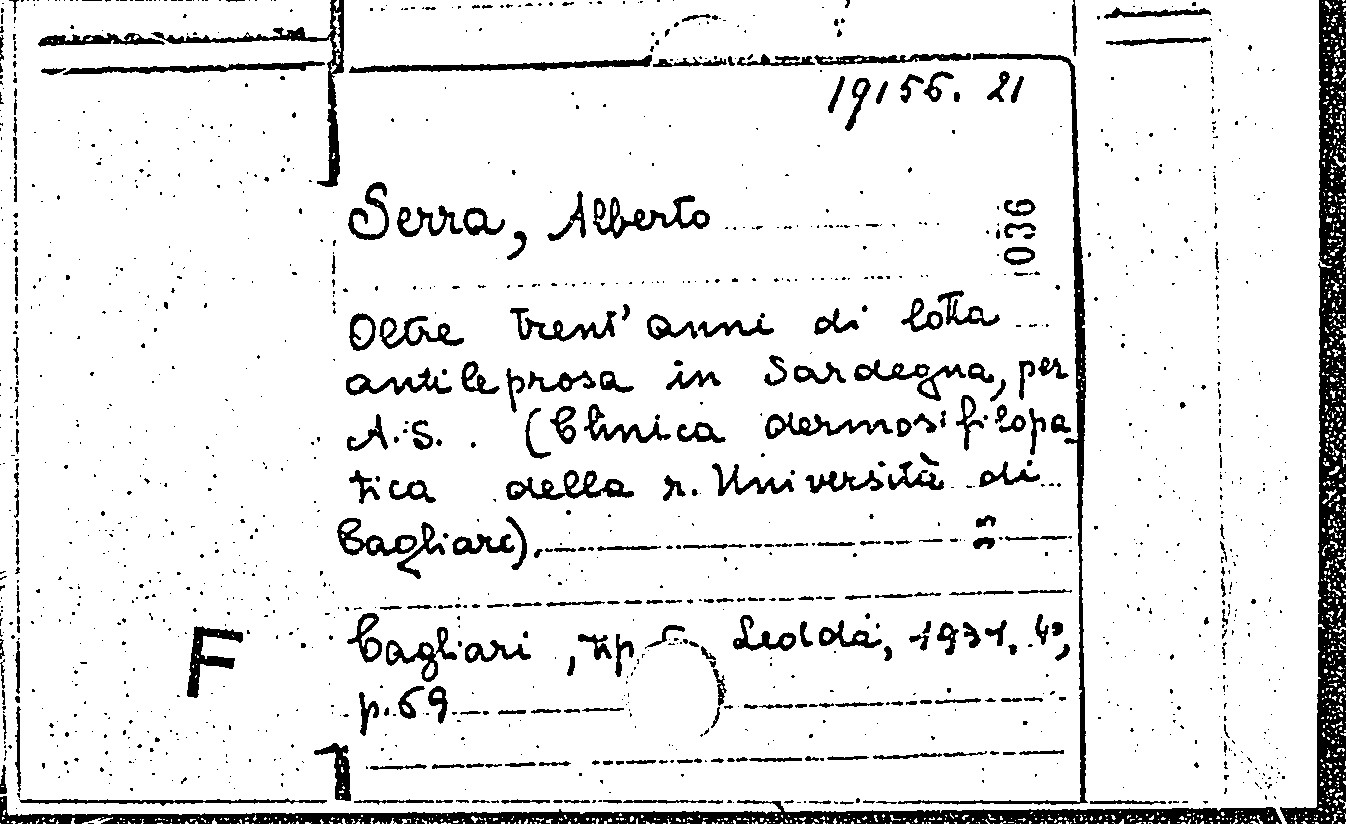 19156. 21
Serra, Alberto
036
Oltre trent' anni di lotta
antileprosa in Sardegna, per
A. S. . (Clinica dermosifilopa_
tica della r. Università di
Cagliari).
Cagliari, tip Ledda, 1931. 4º,
p. 69
F